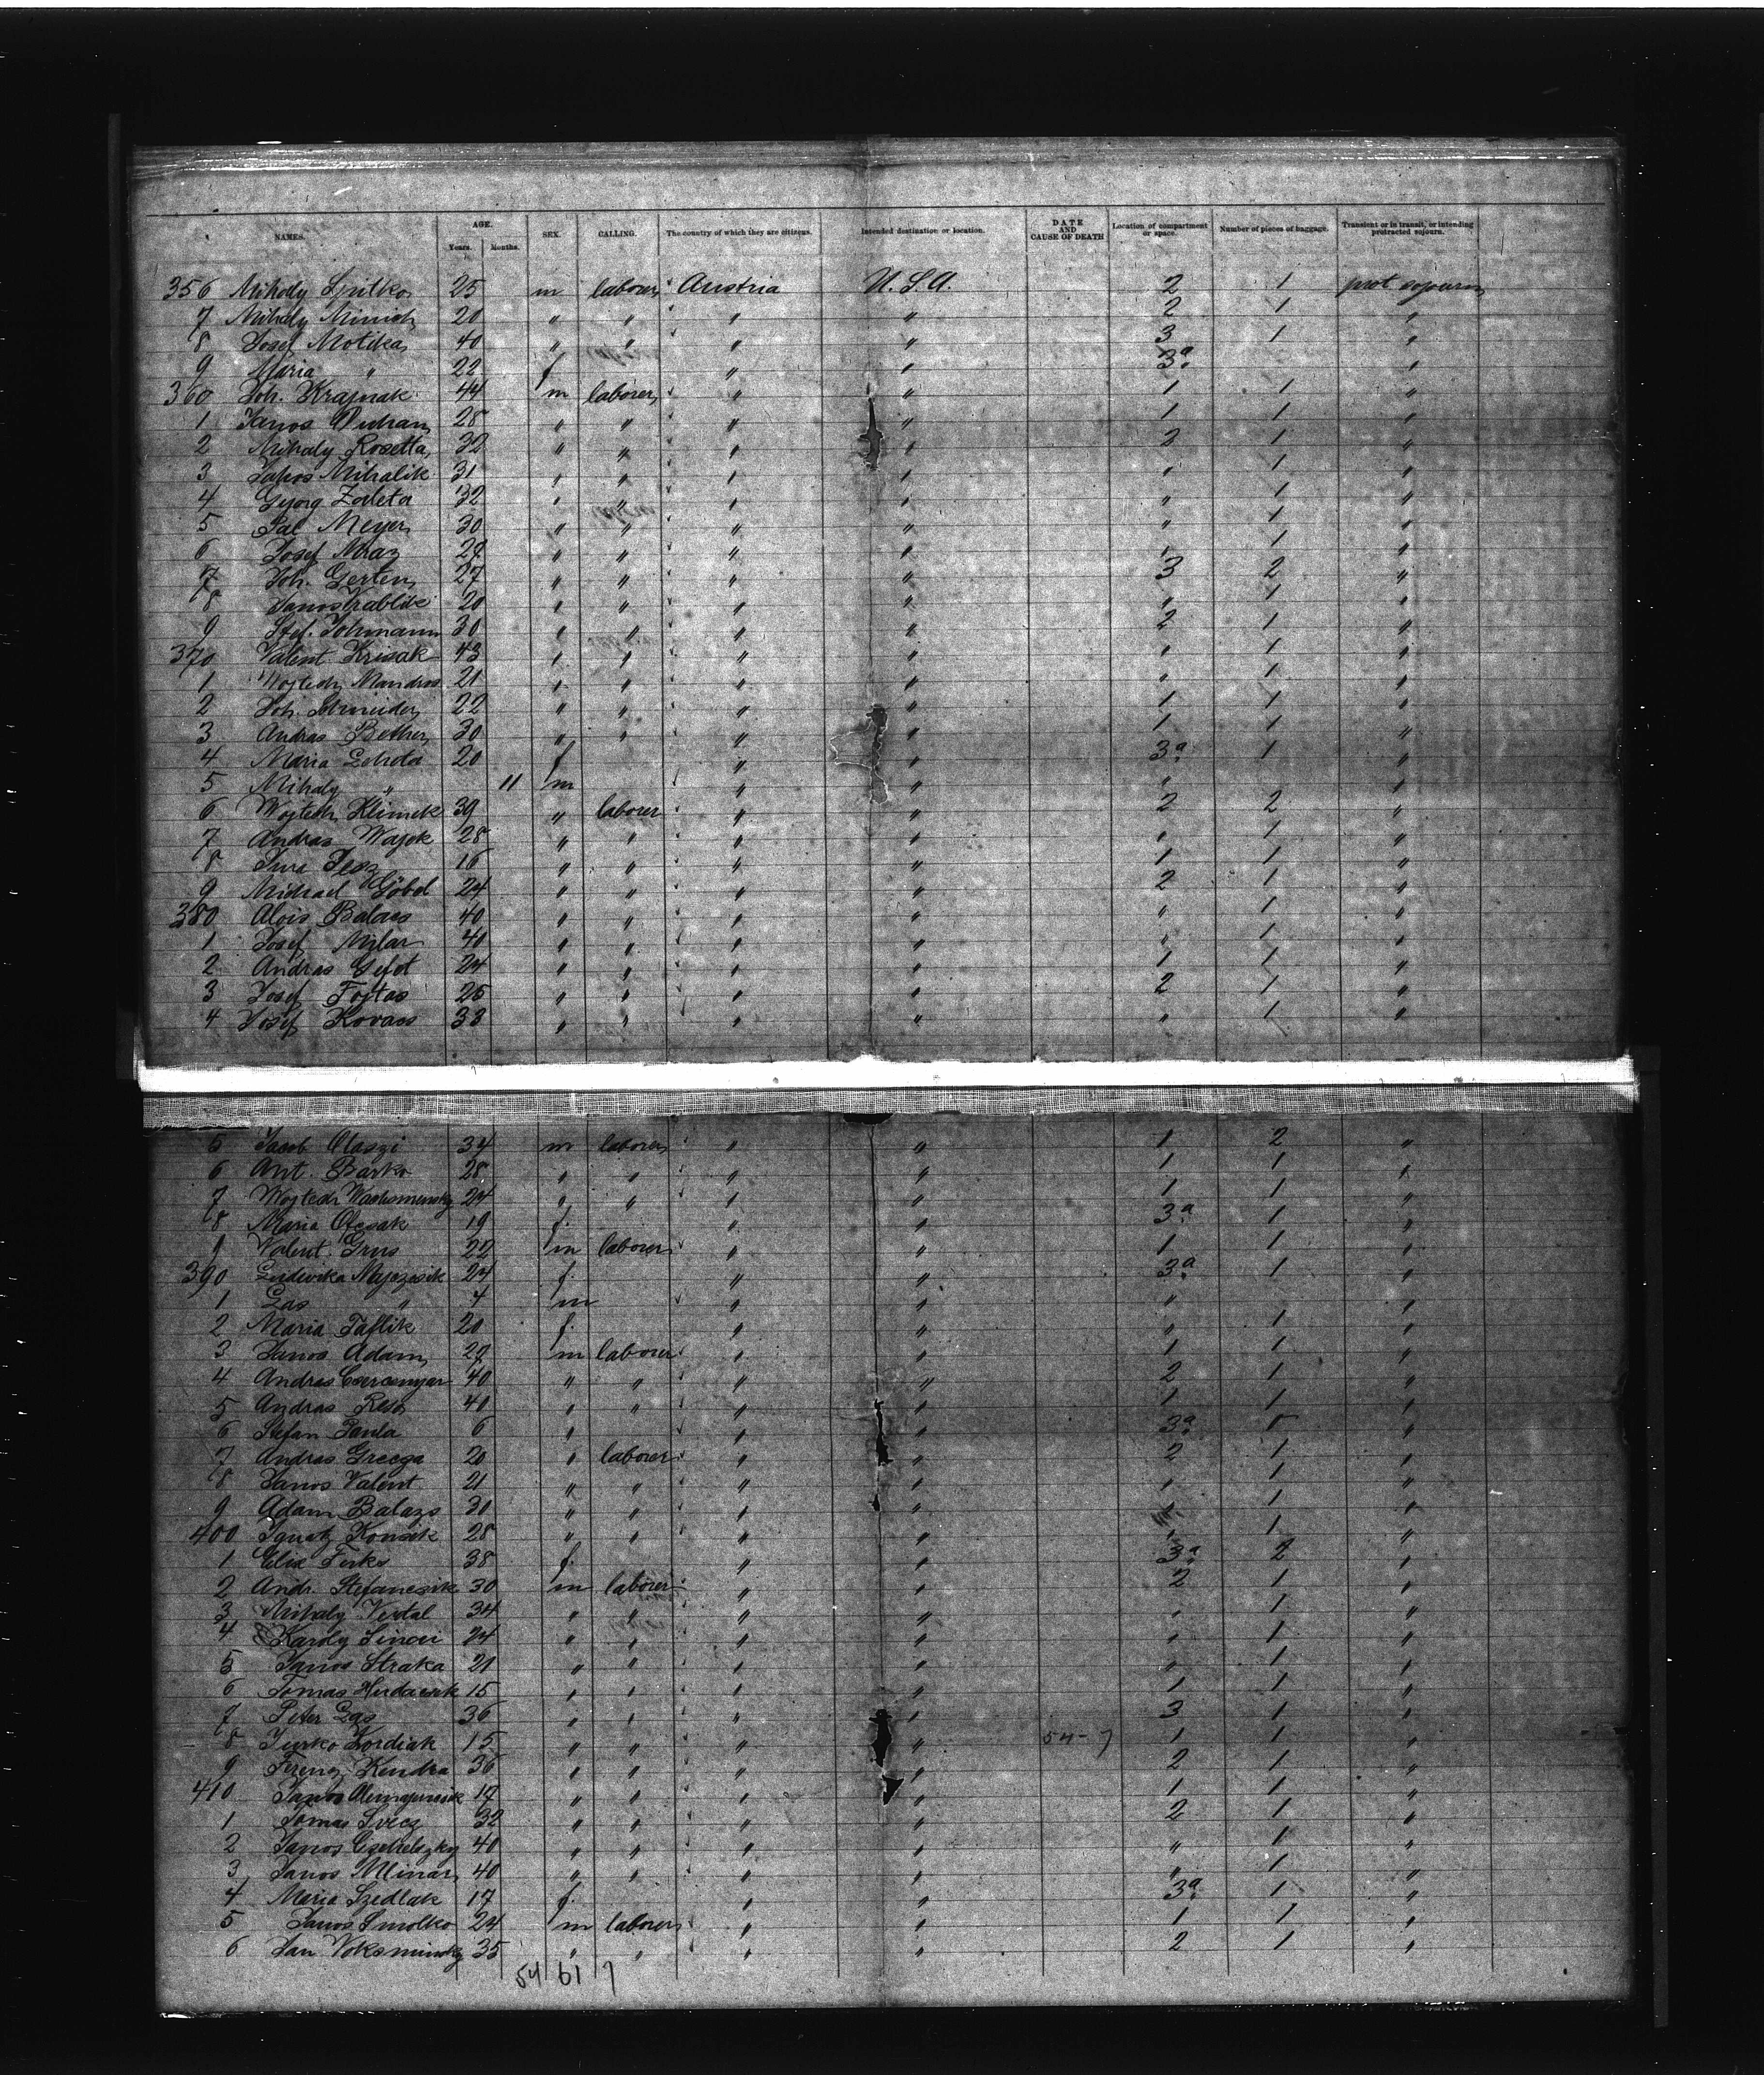 NAMES. AGE. Years. Months. SEX. CALLING. The country of which they are citizens. Intended destination or location. DATE AND CAUSE OF DEATH Location of compartment or space. Number of pieces of baggage. Transient or in transit, or intending protracted sojourn.
356 Mihaly 25 m laborer Austria U.S.A. 2 1 prot sojourn
7 Mihaly Minich 20 " " " " 2 1 "
8 Josef Motika 40 " " " " 3 1 "
9 Maria " 22 f " " 3a "
360 Joh. Krajnak 44 m laborer " " 1 1 "
1 Janos Duhan 28 " " " " 1 1 "
2 Mihaly Rosetta 32 " " " " 2 1 "
3 Mihalik 31 " " " " " 1 "
4 Gyorg Zaleta 32 " " " " " 1 "
5 Pal Meyer 30 " " " " " 1 "
6 Josef Mraz 29 " " " " " 1 "
7 Joh. Gerten 27 " " " " 3 2 "
8 Janos Vrablik 20 " " " " " 1 "
9 Stef. Johmann 30 " " " " 2 1 "
370 Valent Krisak 43 " " " " " 1 "
1 Wojtech Mandros 21 " " " " " 1 "
2 Joh. Schneider 22 " " " " 1 1 "
3 Andras Bether 30 " " " " 1 1 "
4 Maria Lehota 20 f " " 3a 1 "
5 Mihaly " 11 m " " " "
6 Wojtech Klimek 39 " laborer " " 2 2 "
7 Andras Wajok 28 " " " " " 1 "
8 Jura 16 " " " " 1 1 "
9 Michael Göbel 24 " " " " 2 1 "
380 Alois Balaes 40 " " " " " 1 "
1 Josef Mlar 40 " " " " " 1 "
2 Andras 24 " " " " 1 1 "
3 Josef Fojtas 25 " " " " 2 1 "
4 Josef Kovacs 33 " " " " " 1 "
5 Jacob Olaszi 34 m laborer " " 1 2 "
6 Ant. Barko 28 " " " " 1 1 "
7 Wojtech 24 " " " " 1 1 "
8 Maria Olesak 19 f. " " 3a 1 "
9 Valent. Grus 22 m laborer " " 1 1 "
390 Ludwika Majezcsik 24 f. " " 3a 1 "
1 Gas " 4 m " " " "
2 Maria Taflik 20 f. " " " 1 "
3 Janos Adam 29 m laborer " " 1 1 "
4 Andras 40 " " " " 2 1 "
5 Andras Resh 40 " " " " 1 1 "
6 Stefan Paula 6 " " " 3a "
7 Andras Grecga 20 " laborer " " 2 1 "
8 Janos Valent 21 " " " " " 1 "
9 Adam Balazs 30 " " " " 1 "
400 Ignatz Konsik 28 " " " " " 1 "
1 Elis Ferks 38 f. " " 3a 2 "
2 Andr. Stefancsik 30 m laborer " " 2 1 "
3 Mihaly Vestal 34 " " " " " 1 "
4 Karoly Sincei 24 " " " " " 1 "
5 Janos Straka 21 " " " " " 1 "
6 Tomas Hudacsik 15 " " " " 1 1 "
7 Peter Gas 36 " " " " 3 1 "
8 Jurko Kordiak 15 " " " " 54-7 1 1 "
9 Ferenz Kendra 36 " " " " 2 1 "
410 Janos 17 " " " " 1 1 "
1 Tomas Svecz 32 " " " " 2 1 "
2 Janos 40 " " " " " 1 "
3 Janos Mlinar 40 " " " " " 1 "
4 Maria Szedlak 17 f. " " 3a 1 "
5 Janos Smolko 24 m laborer " " 1 1 "
6 Jan Voksminsky 35 " " " " 2 1 "
54 61 7